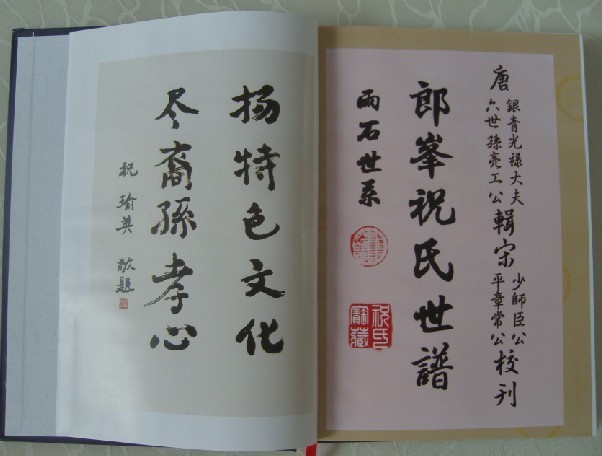 唐銀青光禄大夫六世孫亮工公輯宋少師臣公平章常公校刊
郎峯祝氏世譜
雨石世系
祝氏寶藏
扬特色文化
尽裔孫孝心
祝瑜英 敬題